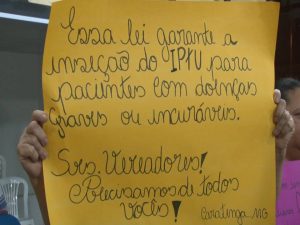 Essa lei garante a
inseção do IPTU para
pacientes com doenças
graves ou incuráveis.
Srs. Vereadores!
Precisamos de todos
vocês!
Caratinga-MG